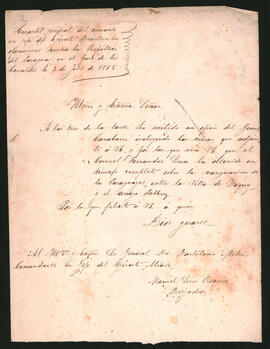 Cuartel general del comando
en gefe del Ejército Brasilero en
operaciones contra la República
del Paraguay, en el paso de los
3 de Julio de 1865
Illmo y Exmo Señor
A las tres de la tarde he recibido un oficio del General
Canabarro incluyendo las copias que adjunto
á VE. y por las que verá VE. que el
Coronel Fernandez Lima ha obtenido un
triunfo completo sobre la vanguardia de
los Paraguayos, entre la Villa de
y el arroyo
Por lo que felicito á VE. á quien
Dios guarde
Al General Dn Bartolomé Mitre
Comandante en Gefe del Ejército Aliado
Manuel Luis Osorio
Brigadier